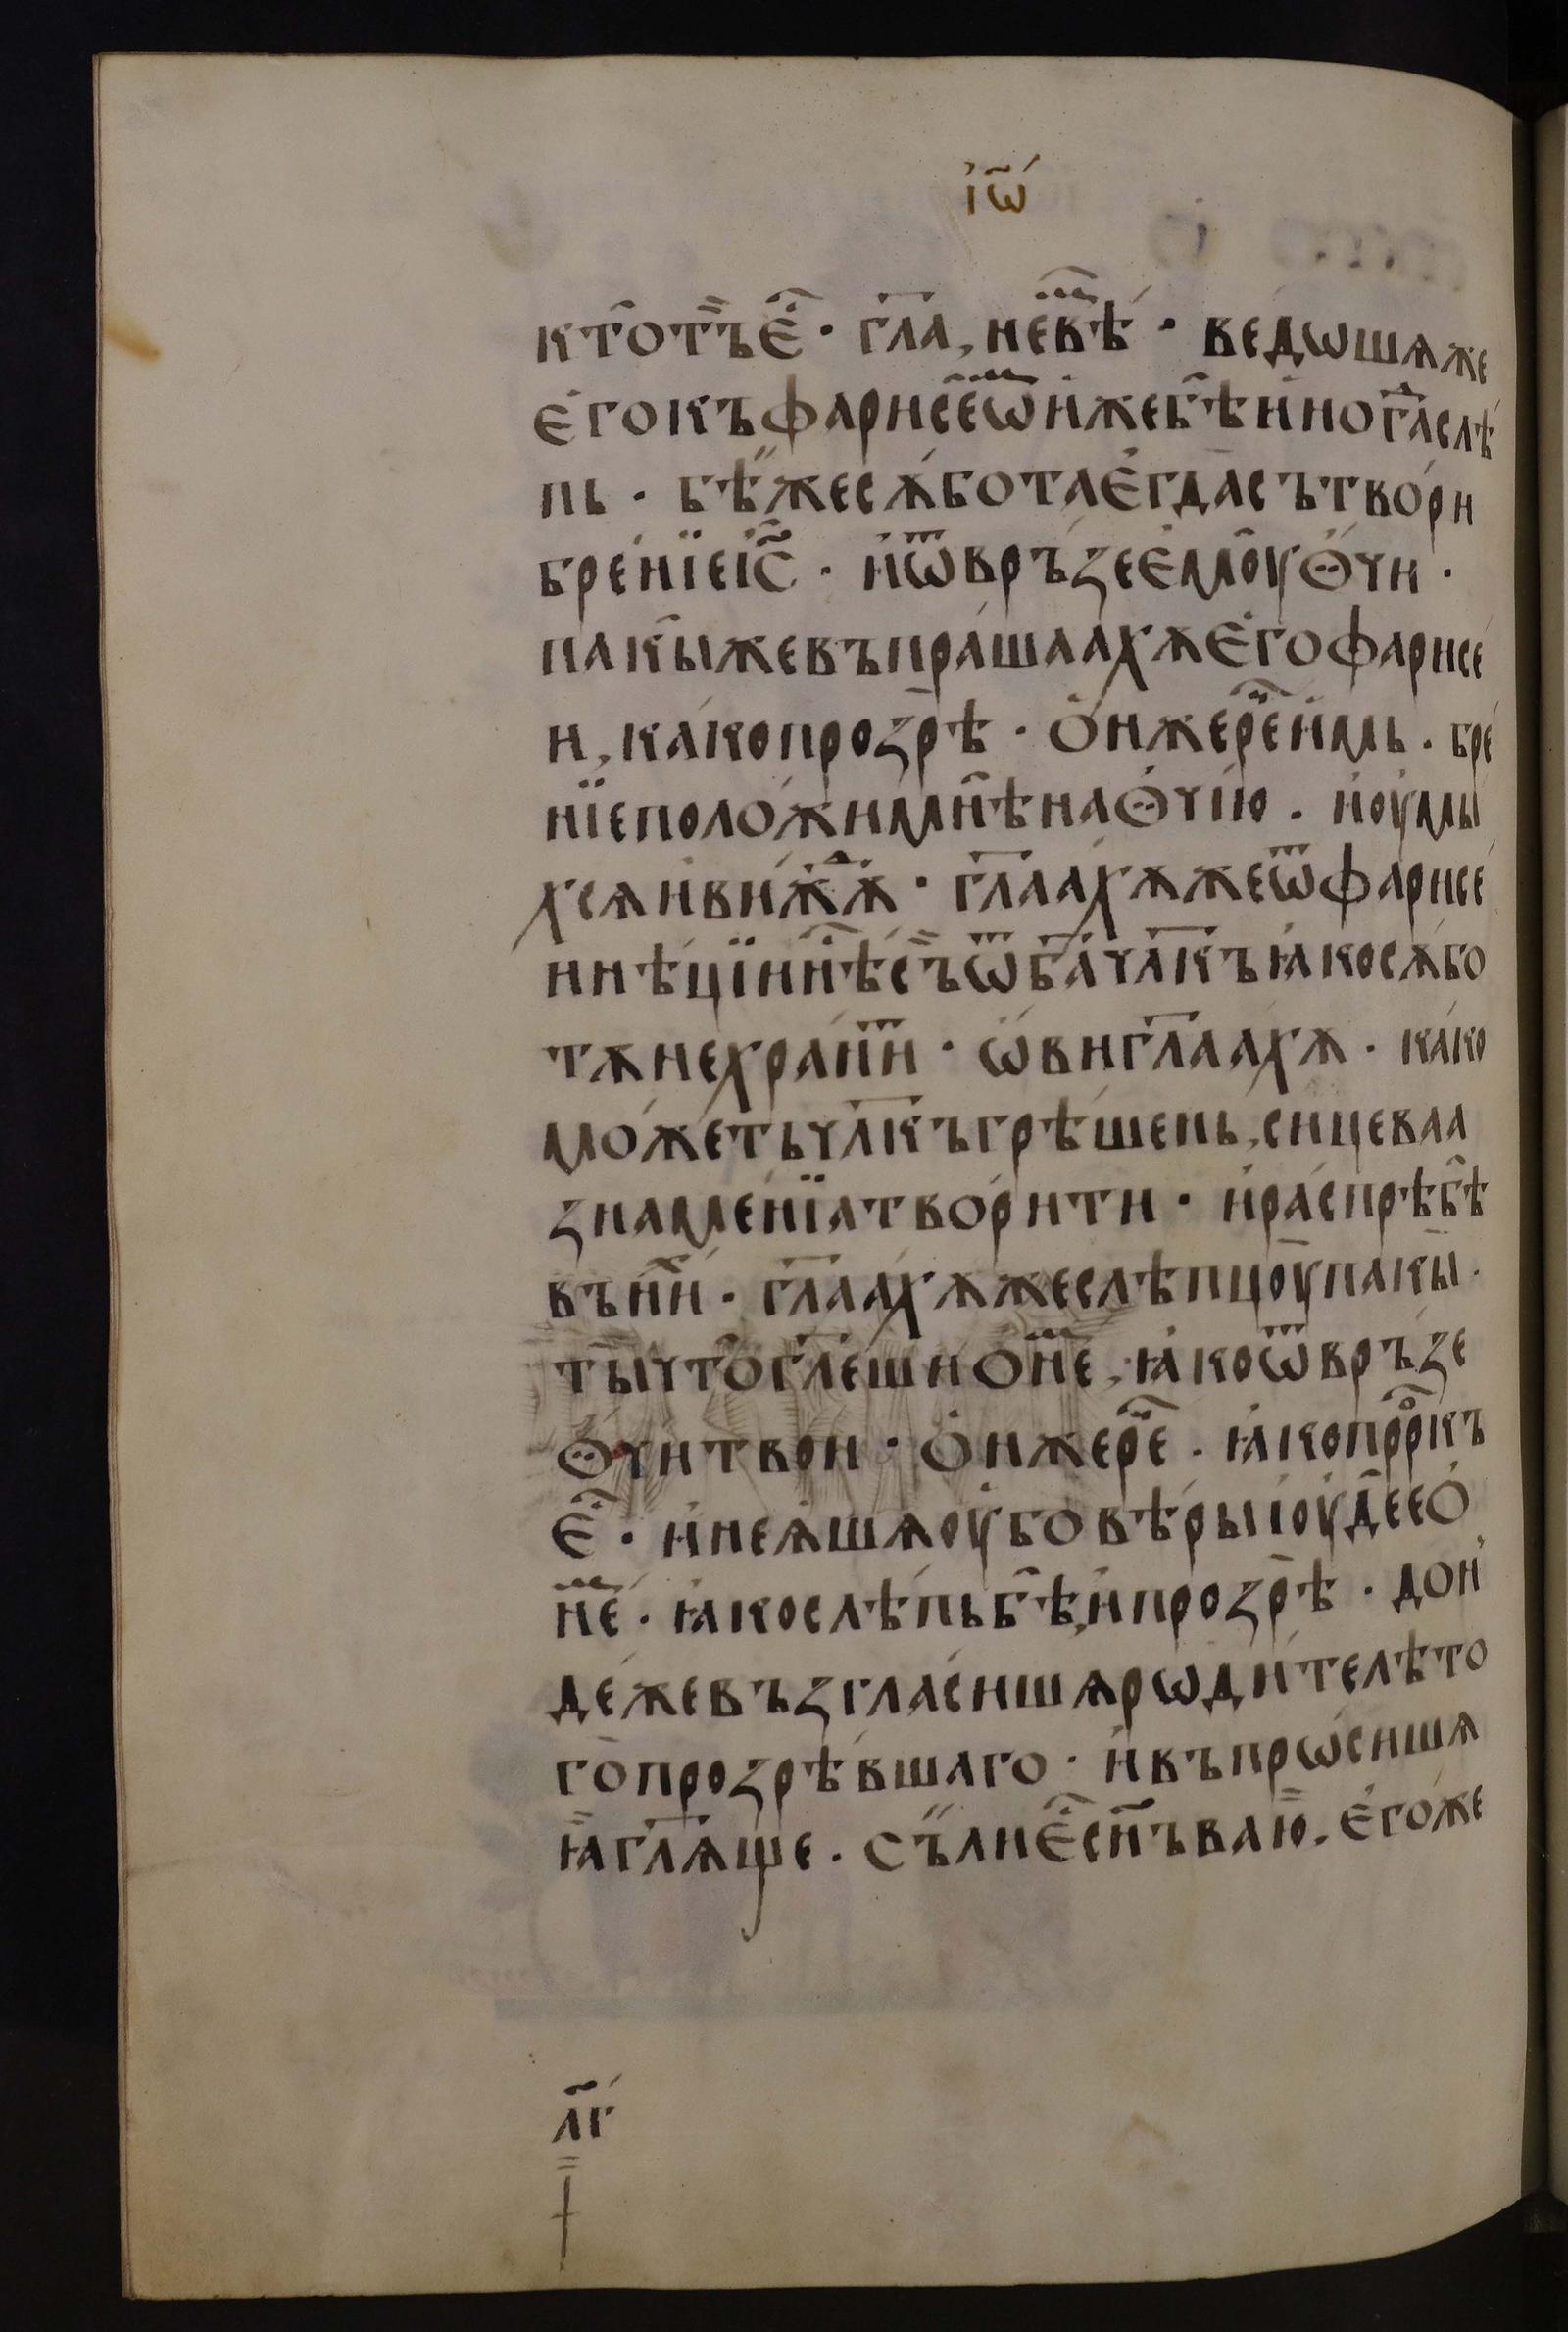 і҆ѡ҃
кто̑тъе̑ⷭ · гл҃а, невⷨѣ · ведѡшѧже
е҆гокъфарисе̑ѡⷨи҆жебѣ̑и҆ногⷣаслѣ
пь · бѣ̏жесѫ́ботаегдасътво́ри
бре́нїеі҆с҃ · и҆ѿвръ́зеемо̑уꙨчи ·
пакы̑жевъпраша́ахѫе҆гофарисе
и, ка́копрозрѣ · о҆нжере́ⷱи҆мь · бре́
нїеполо́жимнѣ̑наꙨчі́ю · и҆оу҆мы́
хсѧи҆ви́жⷣѫ · гл҃аа́хѫжеѿфарисе́
инѣ́цїинѣ́ⷭсъѿба҃чл҃къꙗ҆косѫ́бо
тѫнехра́ниⷮ · ѡ҆вигл҃аа́хѫ · ка́ко
мо́жетьчл҃къгрѣ́шень, си́цеваа
знаме́нїатвори́ти · и҆ра́спрѣбѣ̑
въни́ⷯ · гл҃аа́хѫжеслѣпцоу̀пакы̀ ·
ты̀что̑гл҃е́шио҆не́ⷨ, ꙗ҆коѿвръ́зе
Ꙩчи́твои · о҆нжере́ⷱ · ꙗ҆копрⷪ҇ркъ
е҆ⷭ҇ · и҆неꙗ҆шѧоу҆бовѣ́рыіоу҆де̑ео҆
не́ⷨ · ꙗ҆кослѣ́пьбѣ̑, и҆прозрѣ̀ · дон
де́жевъзгласи́шѧрѡди́телѣто
го̀прозрѣ́вшаго · и҆въпрѡ́сишѧ
ꙗ҆̀гл҃ѧ́ще · съ̏лие҆ⷭ҇сн҃ъваю̀ · е҆го́же
л҃г